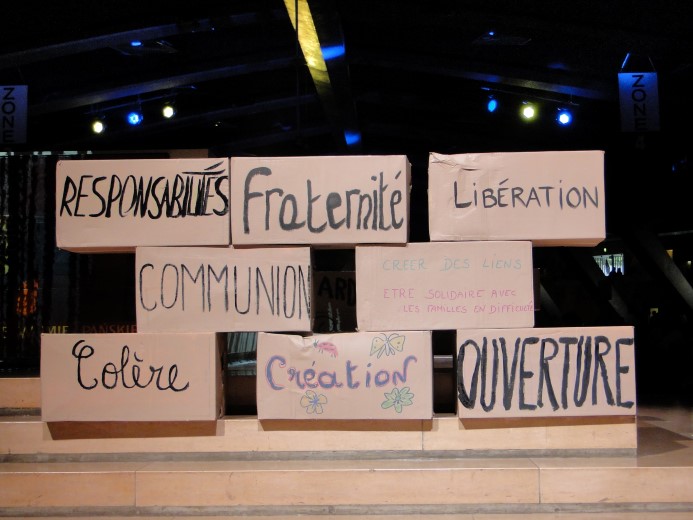 ZONE
ZONE
RESPONSABILITÉS
Fraternité
LIBÉRATION
COMMUNION
ARD
CRÉER DES LIENS
ETRE SOLIDAIRE AVEC
LES FAMILLES EN DIFFICULTÉ
Colère
Création
OUVERTURE